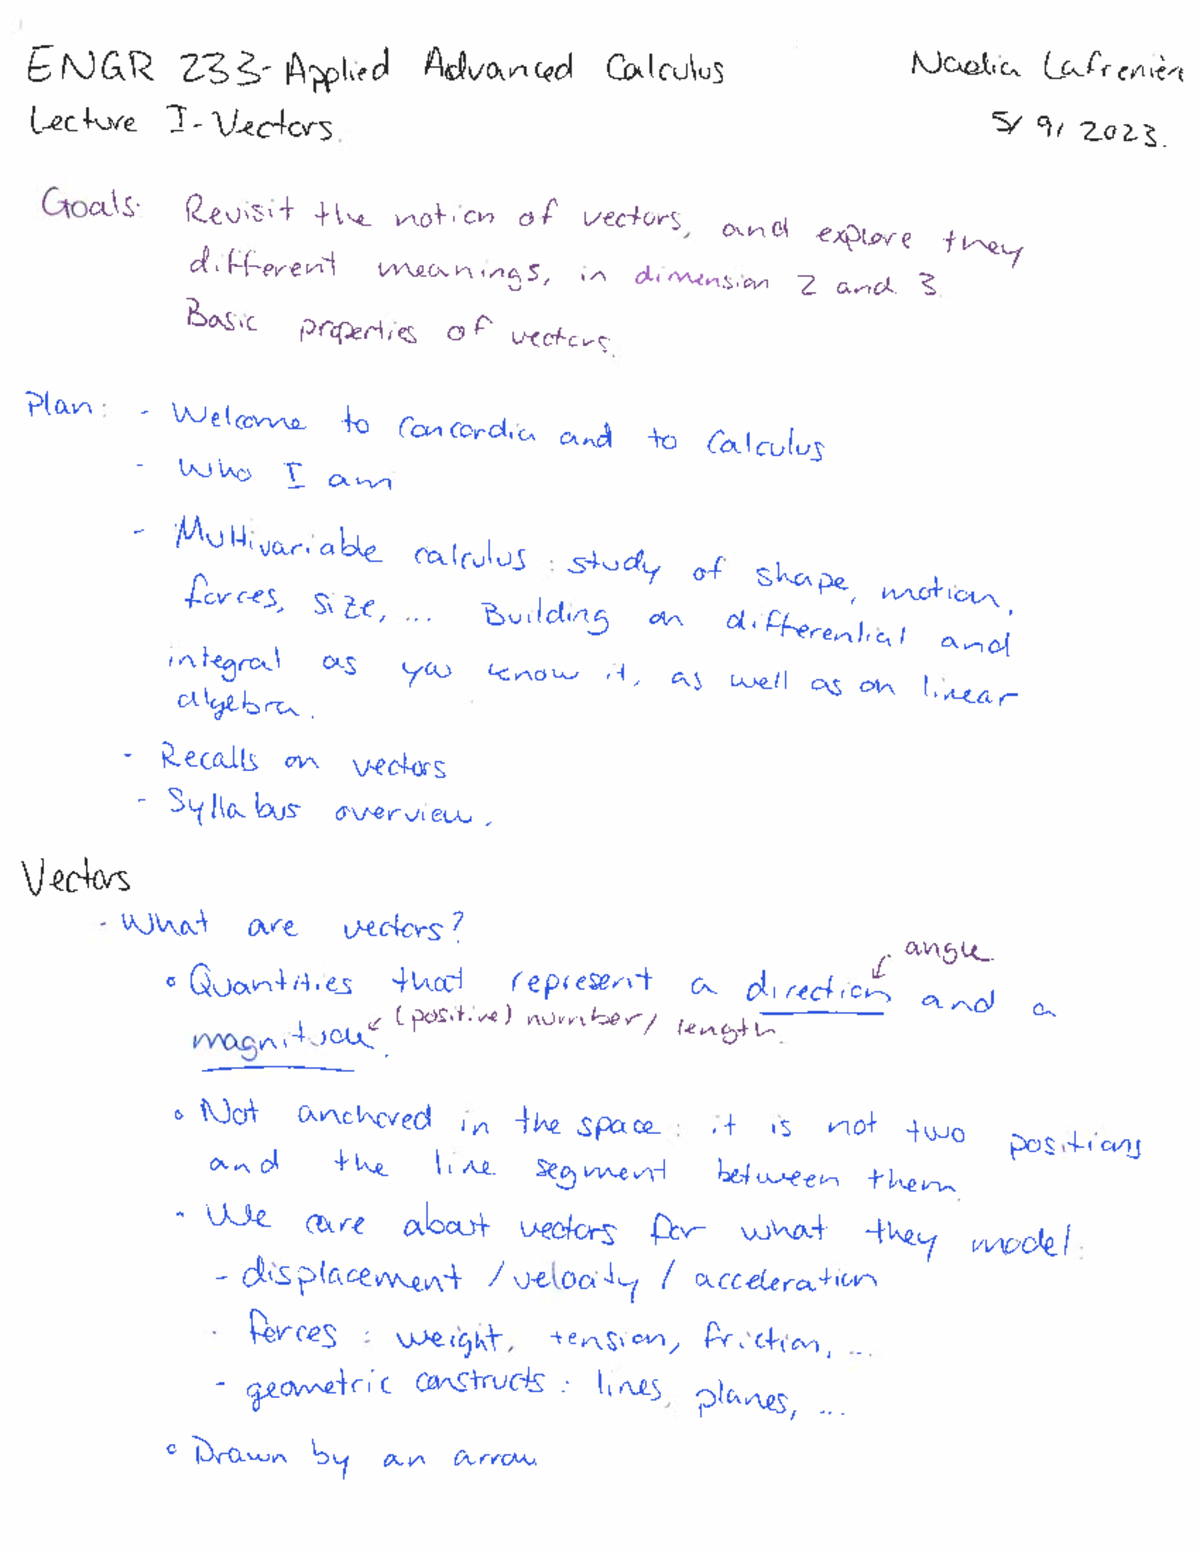 ENGR 233-Applied Advanced Calculus Nadia Lafrenière
Lecture I-Vectors. 5/ 9/ 2023.
Goals: Revisit the notion of vectors, and explore they
different meanings, in dimension 2 and 3.
Basic properties of vectors.
Plan: - Welcome to Concordia and to Calculus
- Who I am
- Multivariable calculus : study of shape, motion,
forces, size, ... Building on differential and
integral as you know it, as well as on linear
algebra.
- Recalls on vectors
- Syllabus overview.
Vectors
- What are vectors?
angle.
° Quantities that represent a direction and a
magnitude. (positive) number/ length.
° Not anchored in the space : it is not two positions
and the line segment between them.
- We care about vectors for what they model:
- displacement / velocity / acceleration
- forces : weight, tension, friction, ...
- geometric constructs : lines, planes, ...
° Drawn by an arrow